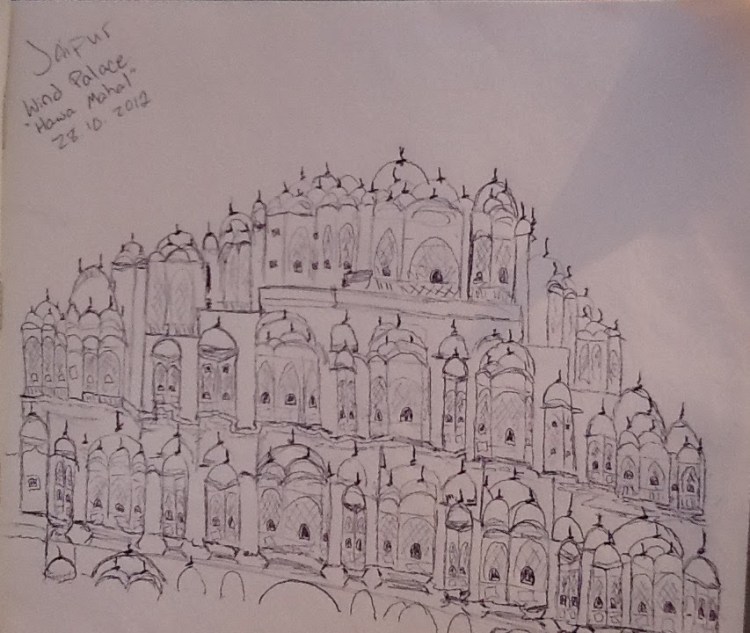 Jaipur
Wind Palace
"Hawa Mahal"
28 10. 2012